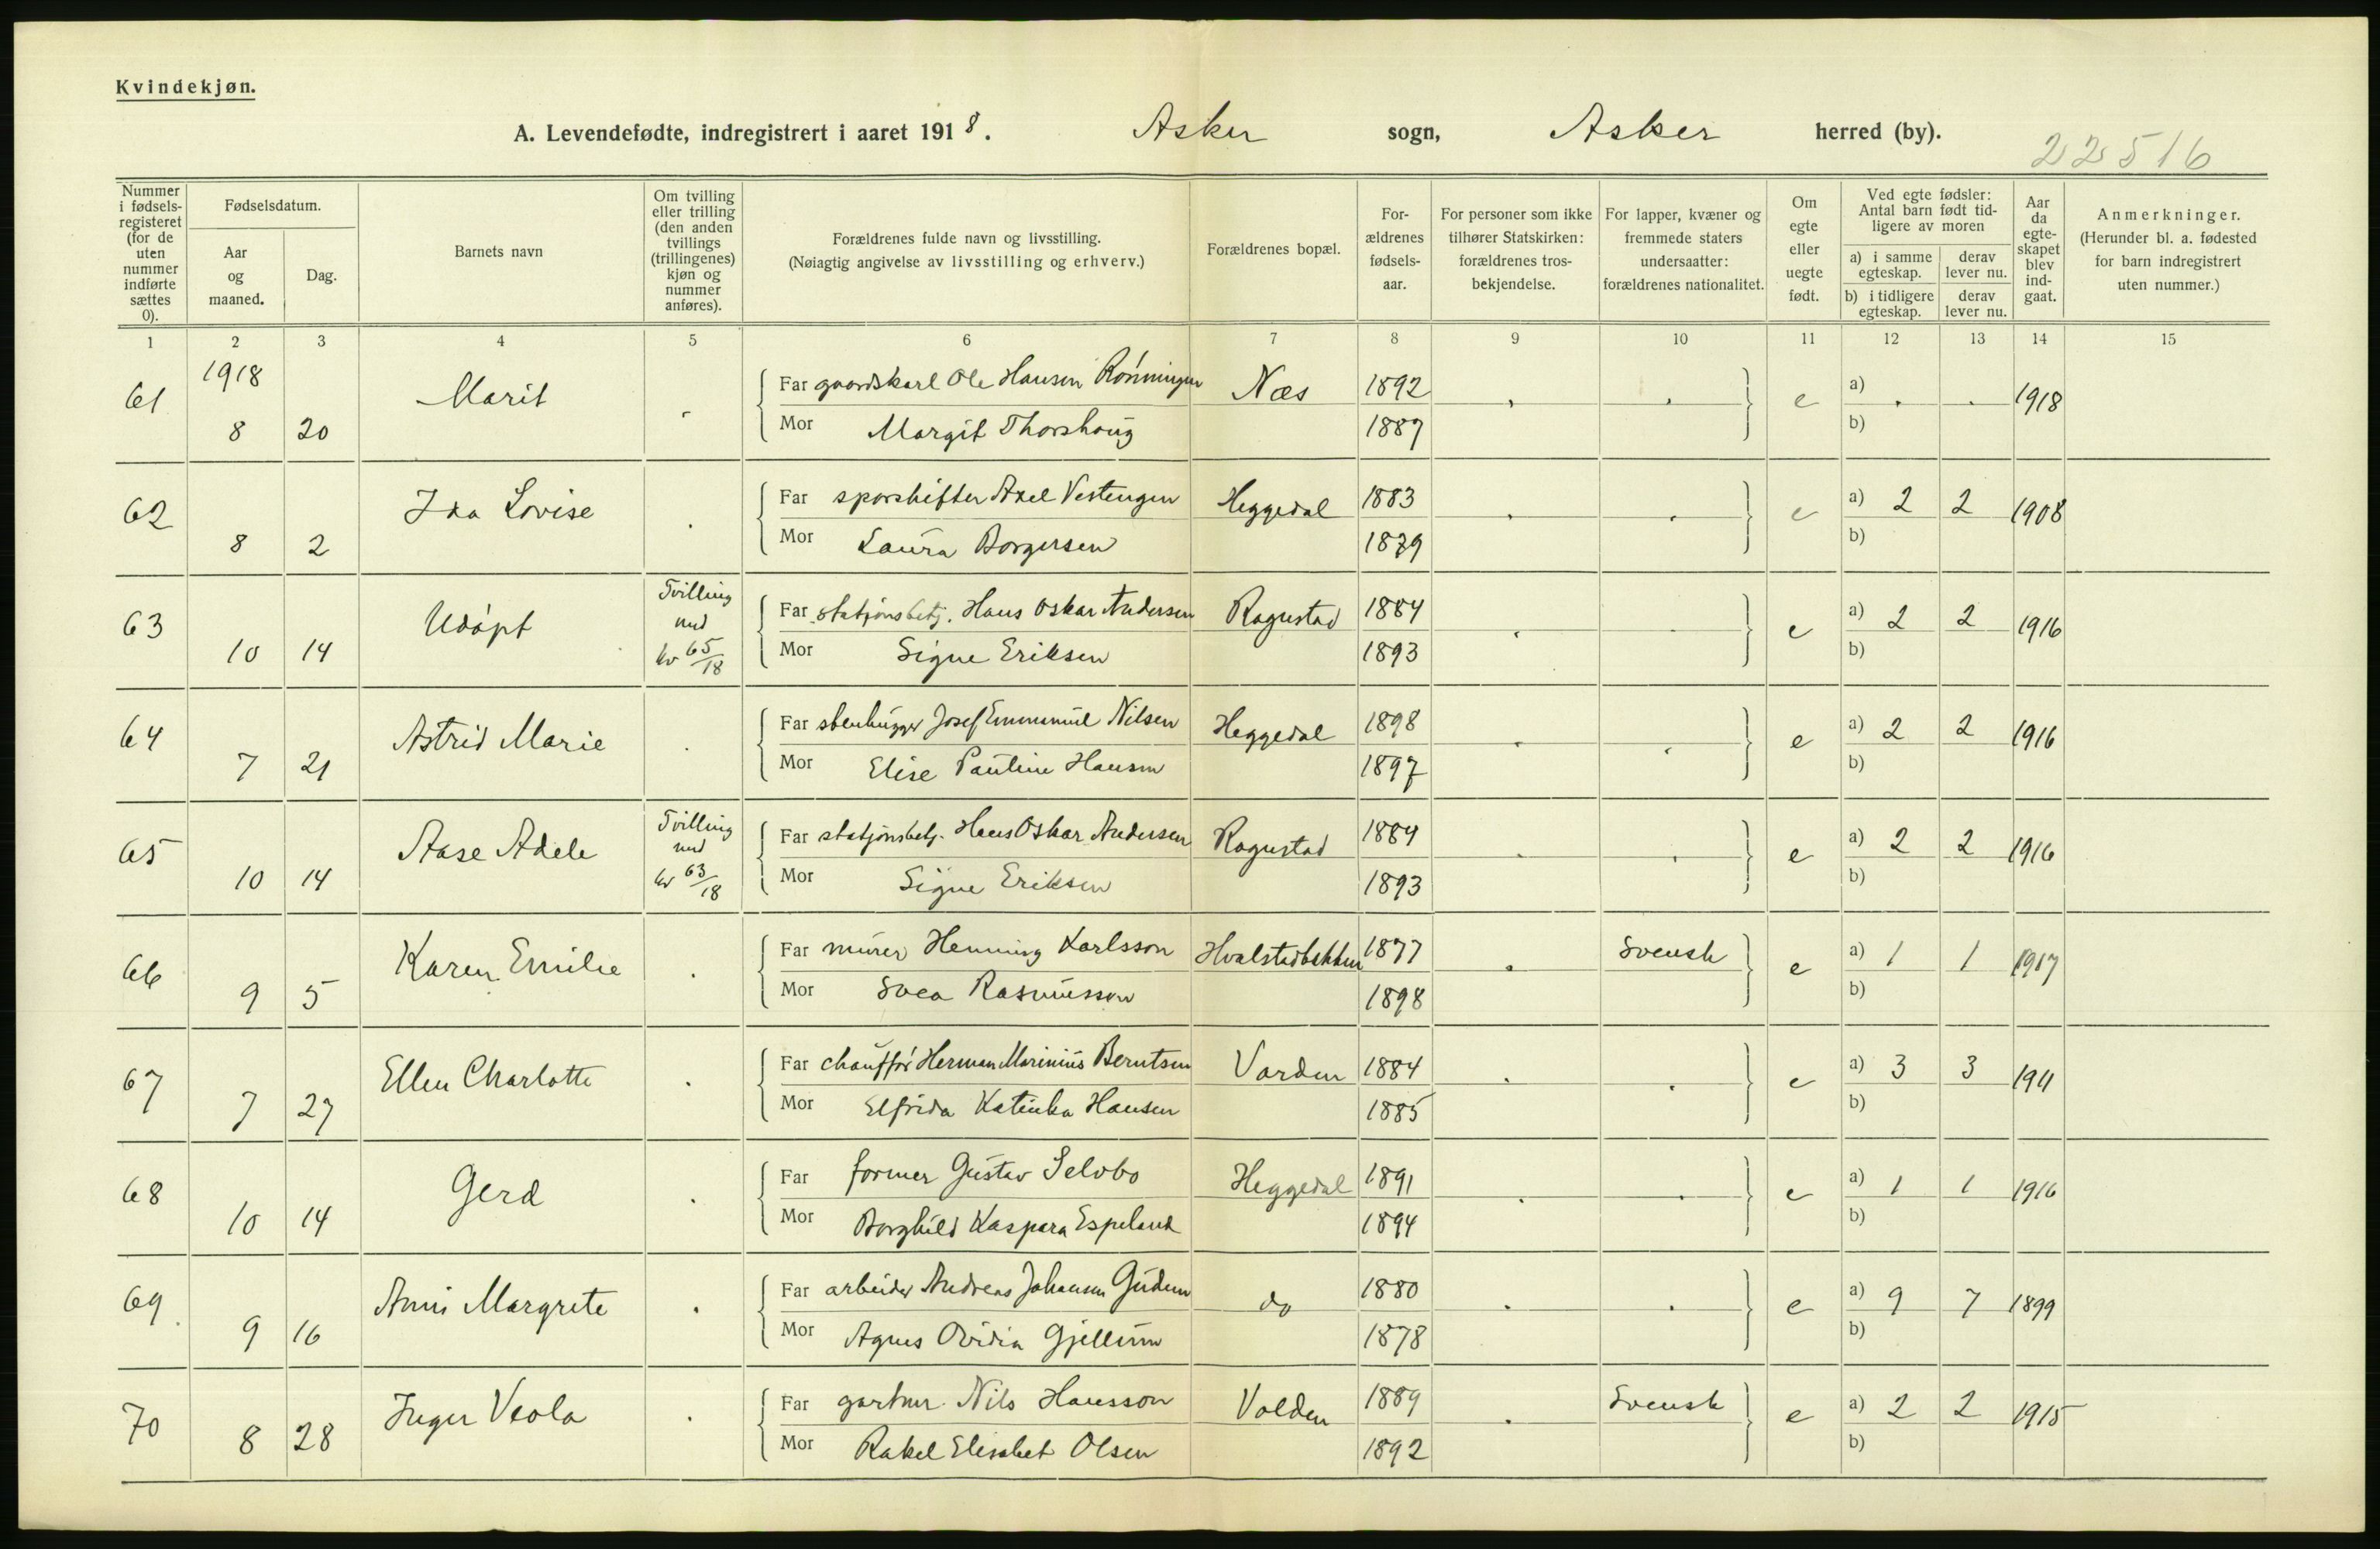 Kvindekjøn.
A. Levendefødte, indregistrert i aaret 1918. Asker sogn, Asker herred (by).
22516
Nummer i fødsels-registeret (for de uten nummer indførte sættes 0).
Fødselsdatum.
Aar og maaned.
Dag.
Barnets navn
Om tvilling eller trilling (den anden tvillings (trillingenes) kjøn og nummer anføres).
Forældrenes fulde navn og livsstilling.
(Nøiagtig angivelse av livsstilling og erhverv.)
Forældrenes bopæl.
For-ældrenes fødsels-aar.
For personer som ikke tilhører Statskirken: forældrenes tros-bekjendelse.
For lapper, kvæner og fremmede staters undersaatter: forældrenes nationalitet.
Om egte eller uegte født.
Ved egte fødsler: Antal barn født tid-ligere av moren
a) i samme egteskap.
derav lever nu.
b) i tidligere egteskap.
derav lever nu.
Aar da egte-skapet blev ind-gaat.
Anmerkninger.
(Herunder bl. a. fødested for barn indregistrert uten nummer.)
1 2 3 4 5 6 7 8 9 10 11 12 13 14 15
1918
61 8 20 Marit Far gaardskarl Ole Hansen Rønningen Næs 1892 e a) 1918
Mor Margit Thorshaug 1887 b)
62 8 2 Ida Lovise Far sporskifter Axel Vestengen Heggedal 1883 e a) 2 2 1908
Mor Laura Borgersen 1879 b)
63 10 14 Udøpt Tvilling med kv 65/18 Far stasjonsbetj. Hans Oskar Andersen Rogustad 1884 e a) 2 2 1916
Mor Signe Eriksen 1893 b)
64 7 21 Astrid Marie Far stenhugger Josef Emmanuel Nilsen Heggedal 1898 e a) 2 2 1916
Mor Elise Pauline Hansen 1897 b)
65 10 14 Aase Adele Tvilling med kv 63/18 Far stasjonsbetj. Hans Oskar Andersen Rogustad 1884 e a) 2 2 1916
Mor Signe Eriksen 1893 b)
66 9 5 Karen Emilie Far murer Henning Karlsson Hvalstadbakken 1877 Svensk e a) 1 1 1917
Mor Svea Rasmusson 1898 b)
67 7 27 Ellen Charlotte Far chauffør Herman Marinius Berntsen Varden 1884 e a) 3 3 1911
Mor Elfrida Katinka Hansen 1885 b)
68 10 14 Gerd Far former Gustav Selvbo Heggedal 1891 e a) 1 1 1916
Mor Borghild Kaspara Espeland 1894 b)
69 9 16 Anni Margrete Far arbeider Andreas Johansen Gudem do 1880 e a) 9 7 1899
Mor Agnes Ovidia Gjellum 1878 b)
70 8 28 Inger Veola Far gartner Nils Hansson Volden 1889 Svensk e a) 2 2 1915
Mor Rakel Elisabet Olsen 1892 b)